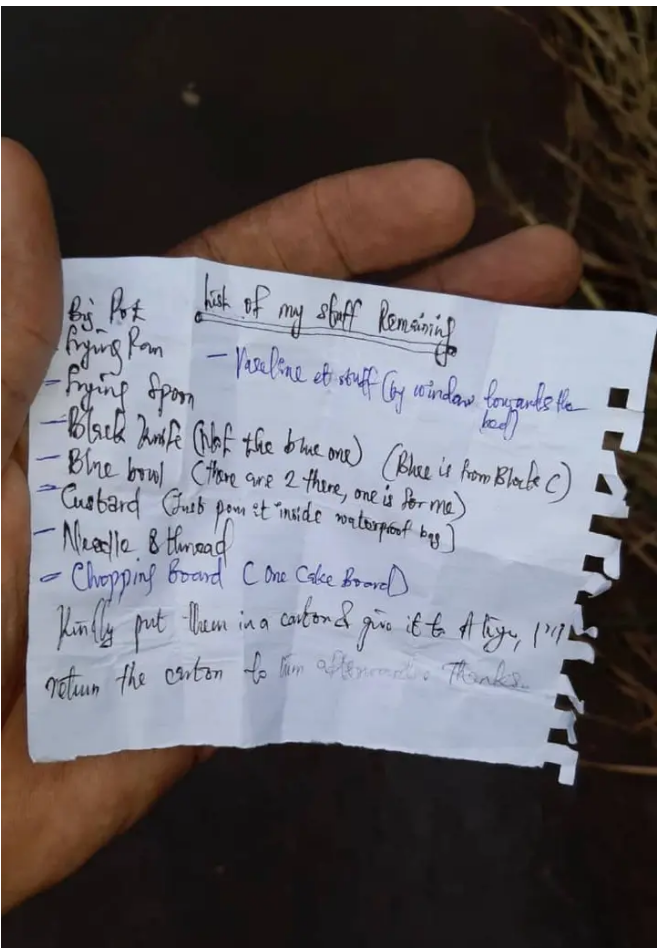 List of my stuff Remaining
Big Pot
Frying Pan
- Vaseline et stuff (by window towards the bed)
- Frying Spoon
- Black Knife (Not the blue one) (Blue is from Block C)
- Blue bowl (there are 2 there, one is for me)
- Custard (Just pour it inside waterproof bag)
- Needle & thread
- Chopping Board (One Cake Board)
Kindly put them in a carton & give it to
return the carton to him Thanks.